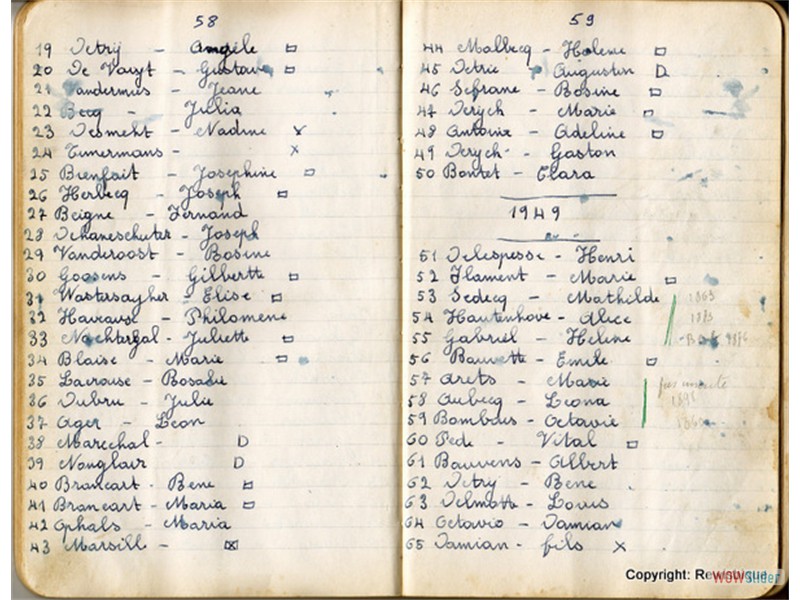 58
19 Detrij - Angèle
20 De Vuyt - Gustave
21 Vandermus - Jeane
22 Becq - Julia
23 Desmeht - Nadine x
24 Timermans - x
25 Bienfait - Josephine
26 Herbecq - Joseph
27 Beigne - Fernand
28 Dehaneschuter - Joseph
29 Vanderoost - Rosine
30 Goosens - Gilbertte
31 Wastersaÿher - Elise
32 Haucause - Philomene
33 Nachtergal - Juliette
34 Blaise - Marie
35 Lacrouse - Rosalie
36 Dubru - Julie
37 Ager - Leon
38 Marechal - D
39 Nanglair D
40 Brancart - Rene
41 Brancart - Maria
42 Ophals - Maria
43 Marsill -
59
44 Malbecq - Helene
45 Detrie - Augustin D
46 Sefrane - Rosine
47 Derych - Marie
48 Antoine - Adeline
49 Derych - Gaston
50 Bontet - Clara
1949
51 Delespesse - Henri
52 Flament - Marie
53 Sedecq - Mathilde 1869
54 Hautenhove - Alice 1873
55 Gabriel - Helene
56 Bauvette - Emile
57 Arets - Marie
58 Aubecq - Leona
59 Bombaus - Octavie
60 Pede - Vital
61 Bauvens - Albert
62 Detry - Rene
63 Delmotte - Louis
64 Octavie - Damian
65 Damian - fils x
Copyright:
WOWSlider